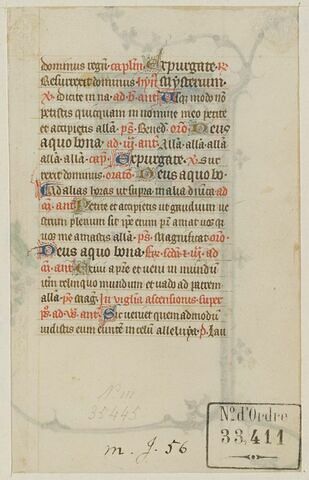 dominus regnū capłm Expurgate R
Resurrexit dominus hyn
v. dicite in na ad b ant Usq modo nō
petistis quicquam in nomine meo petite
et accipietis allā ps Bened orō Deus
a quo bona ad iii ant Allā allā allā
allā allā cap Expurgate v. Sur
rexit dominus oratō Deus a quo bo
Ad alias horas ut supra
ant Petite et accipietis ut gaudium ve
strum plenum sit ipse enim pr amat vos qr
vos me amastis allā ps Magnificat orō
Deus a quo bona
ant Exivi a pre et veni in mundum
itm relinquo mundum et vado ad patrem
allā ps Mag In vigilia ascensionis super
ps ad vs ant Sic veniet quemadmodum
vidistis eum euntem in celum alleluya p Lau
No m
35445
m. J. 56
No d'Ordre
33,411